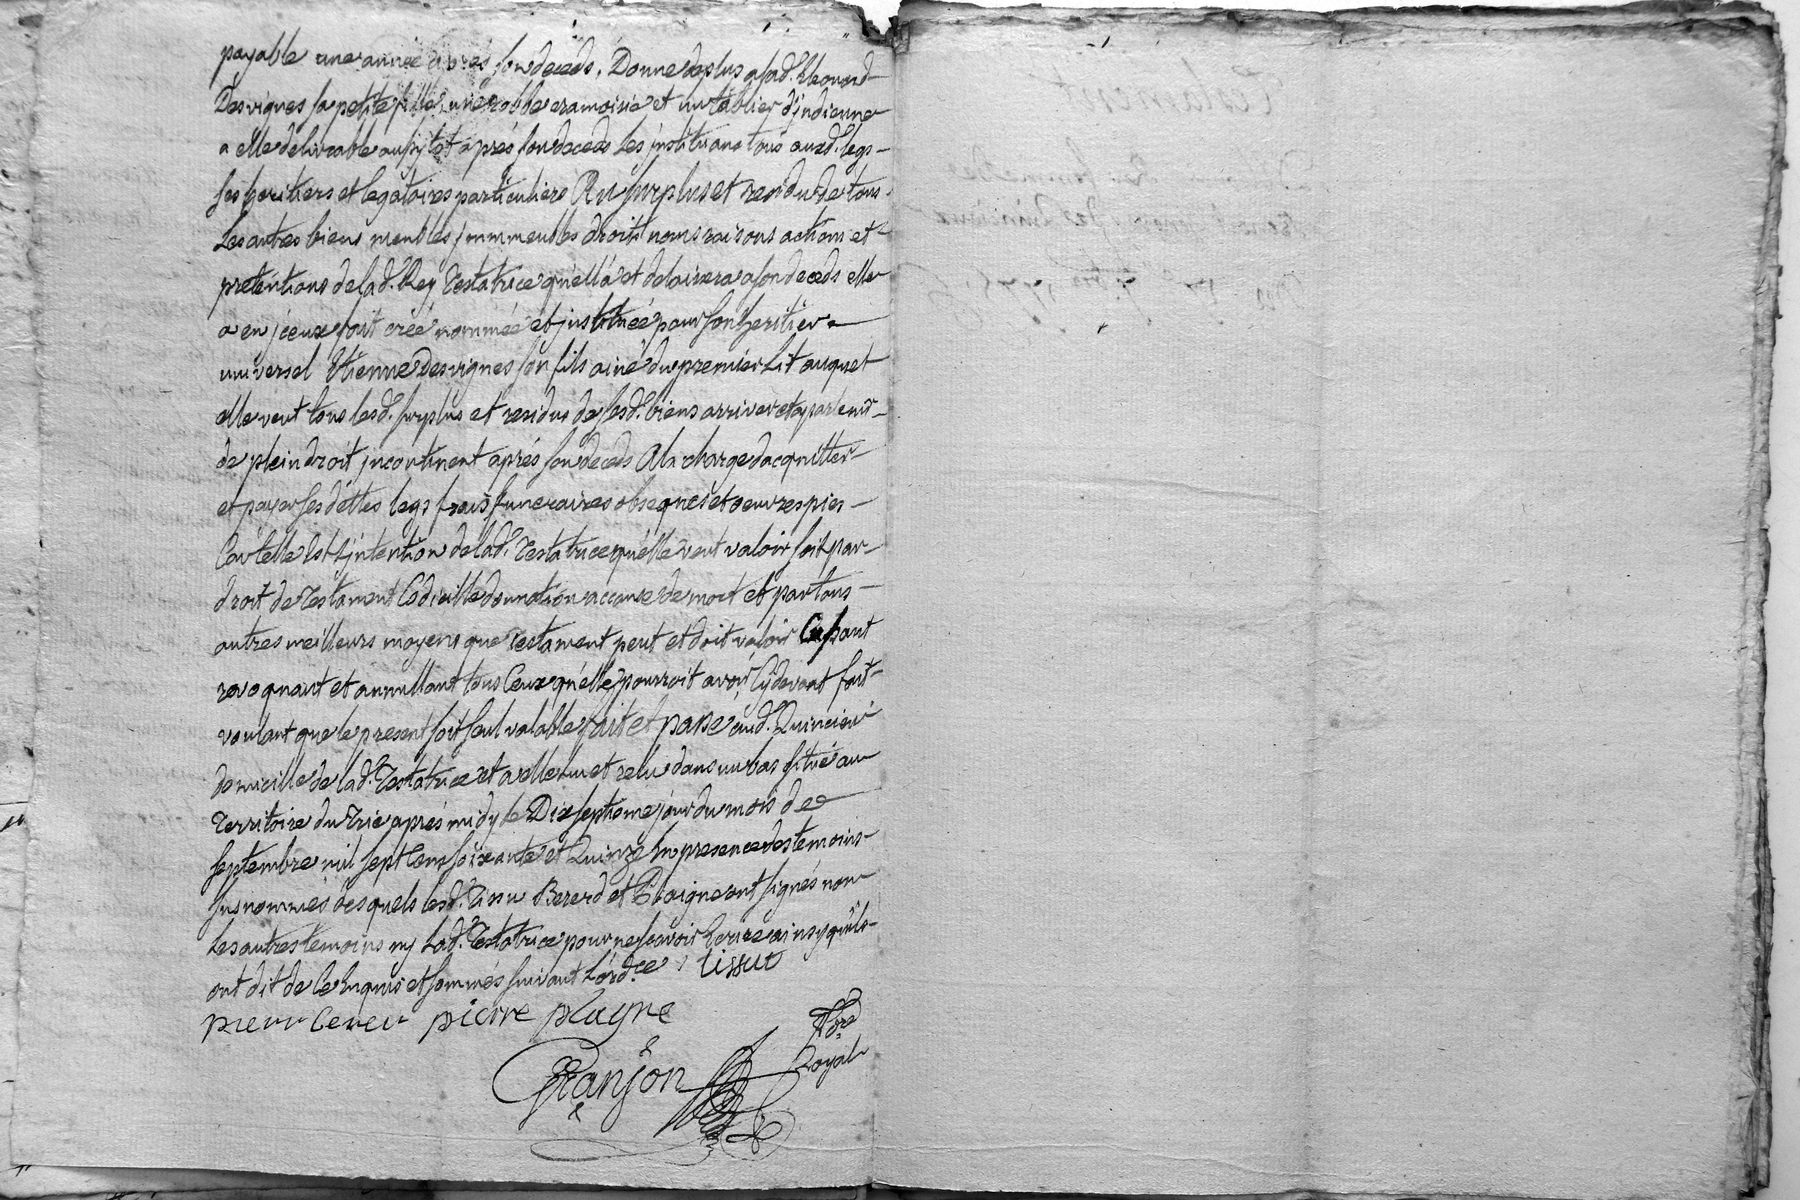 payable une année aprés son deceds. Donne de plus a lad. Leonard
Desvignes sa petite fille une robbe cramoisie et un tablier d'indienne
a elle delivrable aussytot aprés son deceds les instituant tous auxd. legs
ses heritiers et legataires particuliers Au surplus et residu de tous
Les autres biens meubles jmmeubles droits noms raisons actions et
pretentions de lad. Rey Testatrice qu'ella et delaissera a son deceds elle
a en jceux fait créé nommée et institueé pour son heritier
universel Etienne Desvignes son fils ainé du premier Lit auquel
elle veut tous lesd. surplus et residus de sesd. biens arriver et apartenir
de plein droit jncontinent aprés son deceds Ala charge dacquitter
et payer ses déttes legs frais funeraires obseques et oeuvres pies
Car telle est L'jntention de lad. Testatrice qu'elle veut valoir soit par
droit de Testament Codicille donnation a cause de mort et par tous
autres meilleurs moyens que testament peut et doit valoir Cassant
revoquant et annullant tous Ceux qu'elle pourroit avoir Cydevant fait
voulant que le present soit seul valable fait et passé aud. Quincieu
domicille de lad. Testatrice et a elle lu et relu dans un bas situé au
Territoire du Trie aprés midy le Dix septieme jour du mois de
septembre mil sept Cens soixante et Quinze En presence des temoins
susnommés desquels lesd. Tissu Bererd et Plaigne ont signés non
Les autres temoins ny Lad. Testatrice pour ne scavoir Ecrire ainsy qu'ils
ont dit de ce Enquis et sommés suivant L'ord.ce tissut
pierre plagne
Granjon
N.re
Royal
Testament